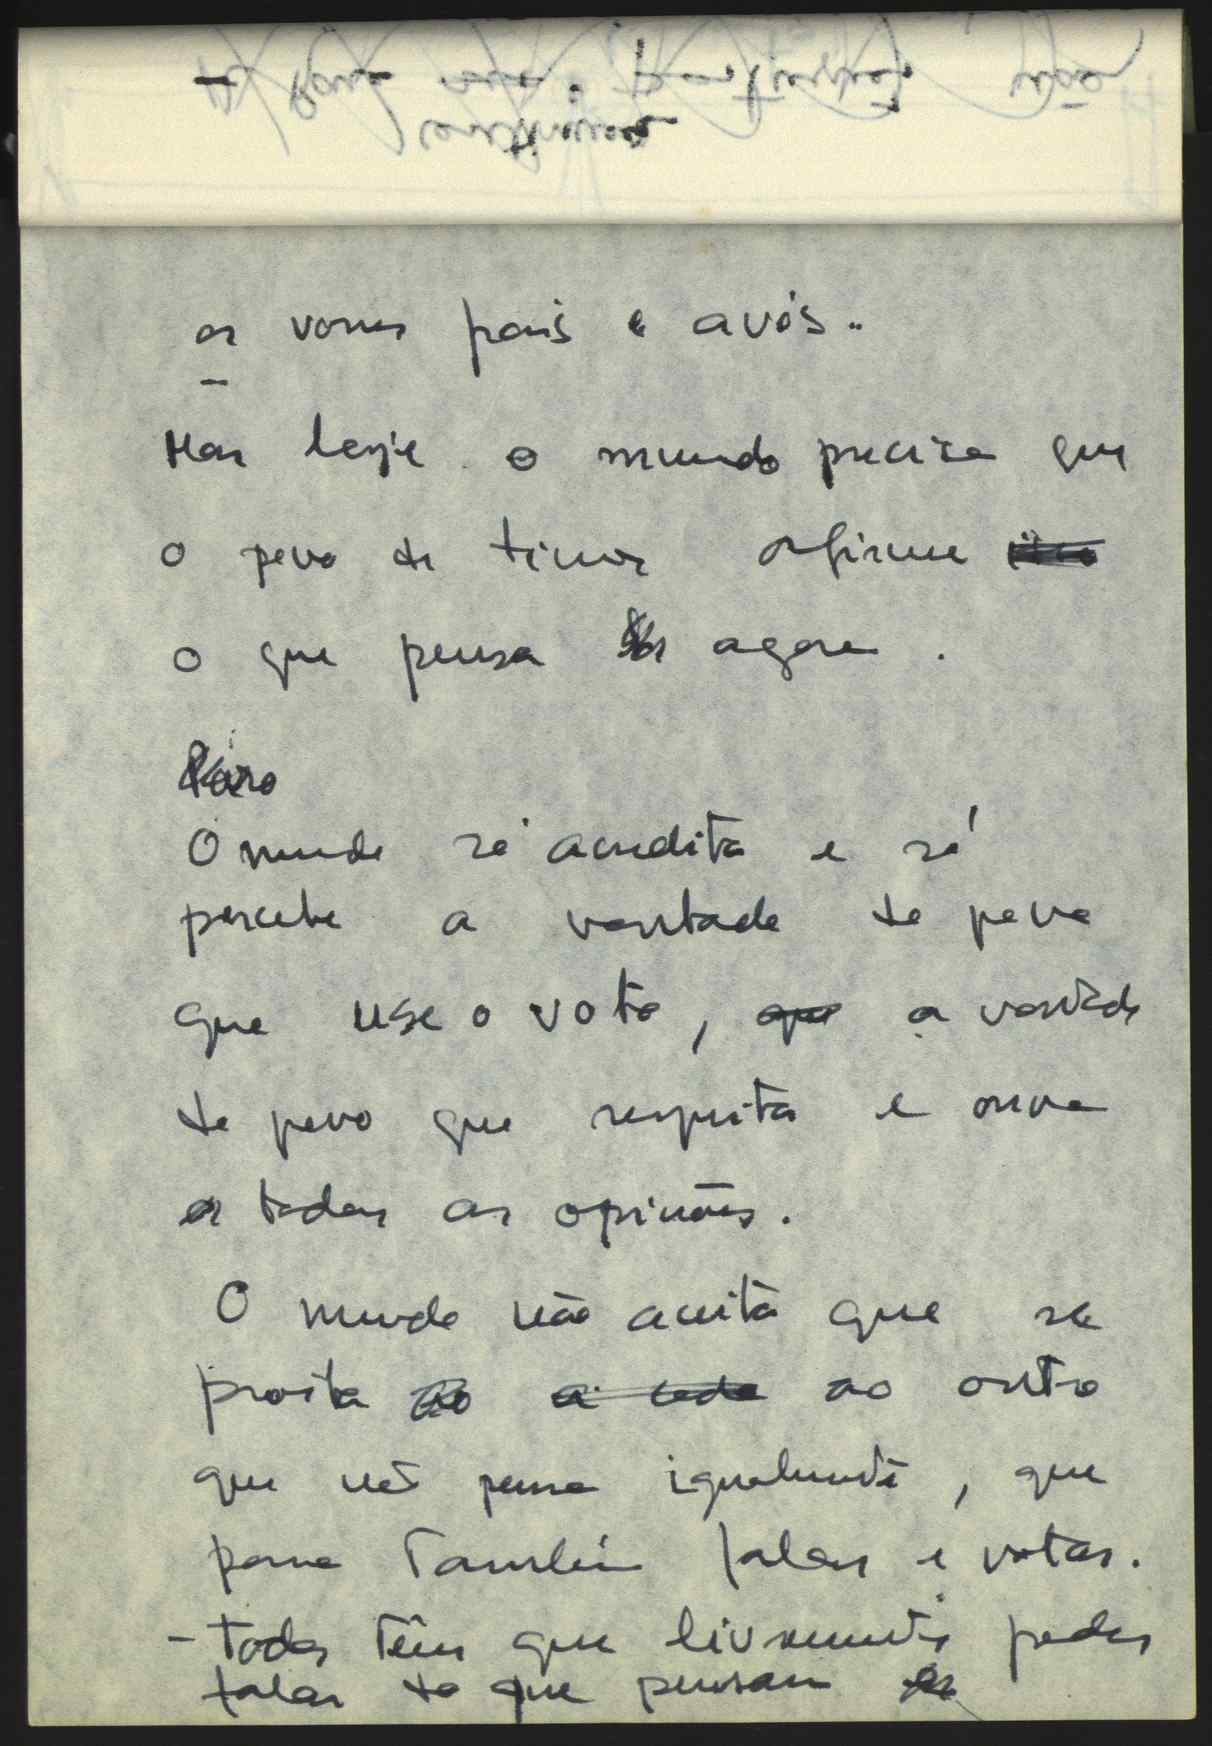 os vossos pais e avós..
Mas hoje o mundo precisa que
o povo de timor afirme
o que pensa agora.
O mundo só acredita e só
percebe a vontade do povo
que use o voto, que a vontade
do povo que respeita e ouve
a todas as opiniões.
O mundo não aceita que se
proiba ao outro
que não pensa igualmente, que
possa também falar e votar.
- todos têm que livremente poder
falar do que pensam